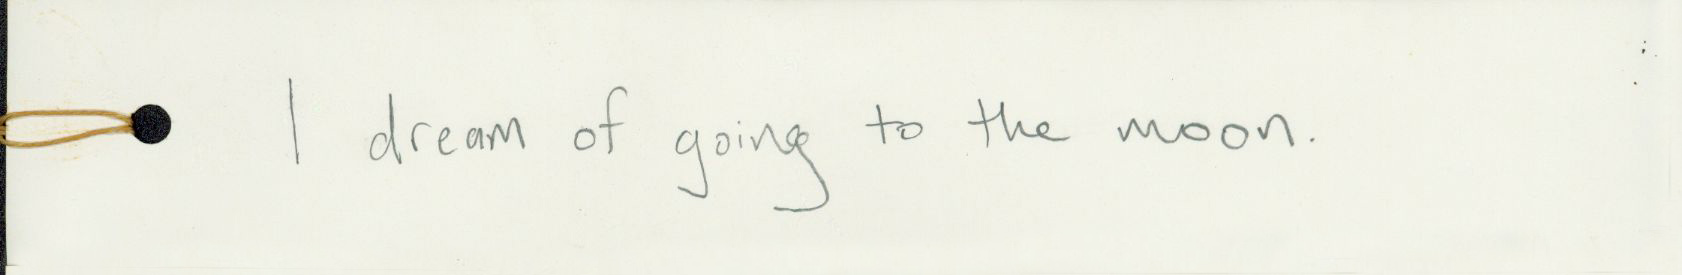 I dream of going to the moon.